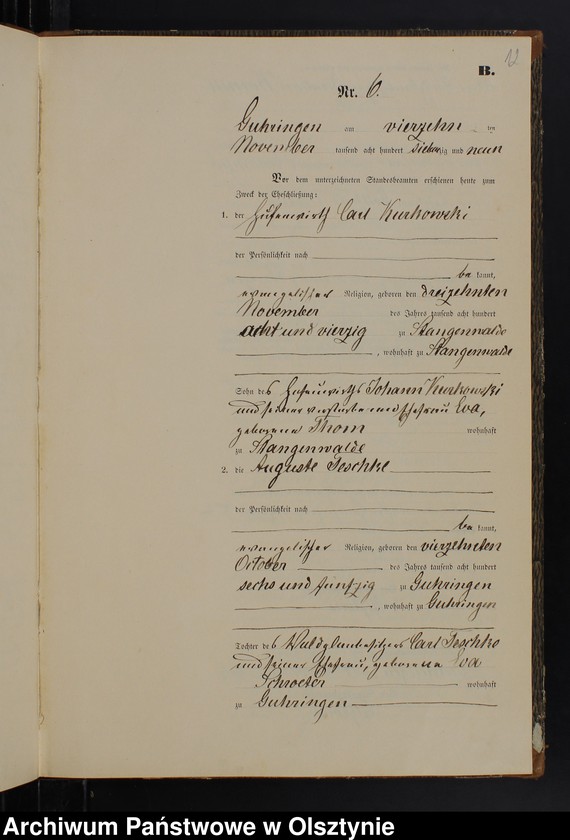 12
B.
Nr. 6.
Guhringen am vierzehn ten
November tausend acht hundert siebenzig und neun
Vor dem unterzeichneten Standesbeamten erschienen heute zum
Zweck der Eheschließung:
1. der Hufenwirth Carl Kurkowski
der Persönlichkeit nach
be kannt,
evangelischer Religion, geboren den dreizehnten
November des Jahres tausend acht hundert
acht und vierzig zu Stangenwalde
, wohnhaft zu Stangenwalde
Sohn des Hufenwirths Johann Kurkowski
und seiner verstorbenen Ehefrau Eva,
geborenen Thom wohnhaft
zu Stangenwalde
2. die Auguste Teschke
der Persönlichkeit nach
be kannt,
evangelischer Religion, geboren den vierzehnten
October des Jahres tausend acht hundert
sechs und fünfzig zu Guhringen
, wohnhaft zu Guhringen
Tochter des Carl Teschke
und seiner Ehefrau, geborenen Eva
Schroeter wohnhaft
zu Guhringen
Archiwum Państwowe w Olsztynie